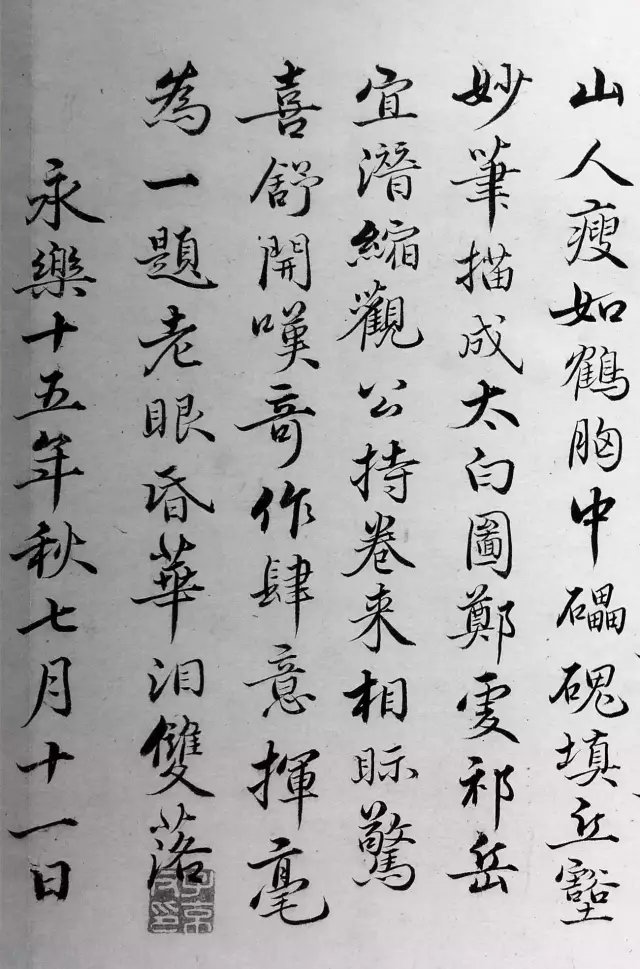 山人瘦如鶴胸中礧磈填丘壑
妙筆描成太白圖鄭䖍祁岳
宜潛縮觀公持卷来相眎驚
喜舒開嘆奇作肆意揮毫
為一題老眼昏華泪雙落
永樂十五年秋七月十一日